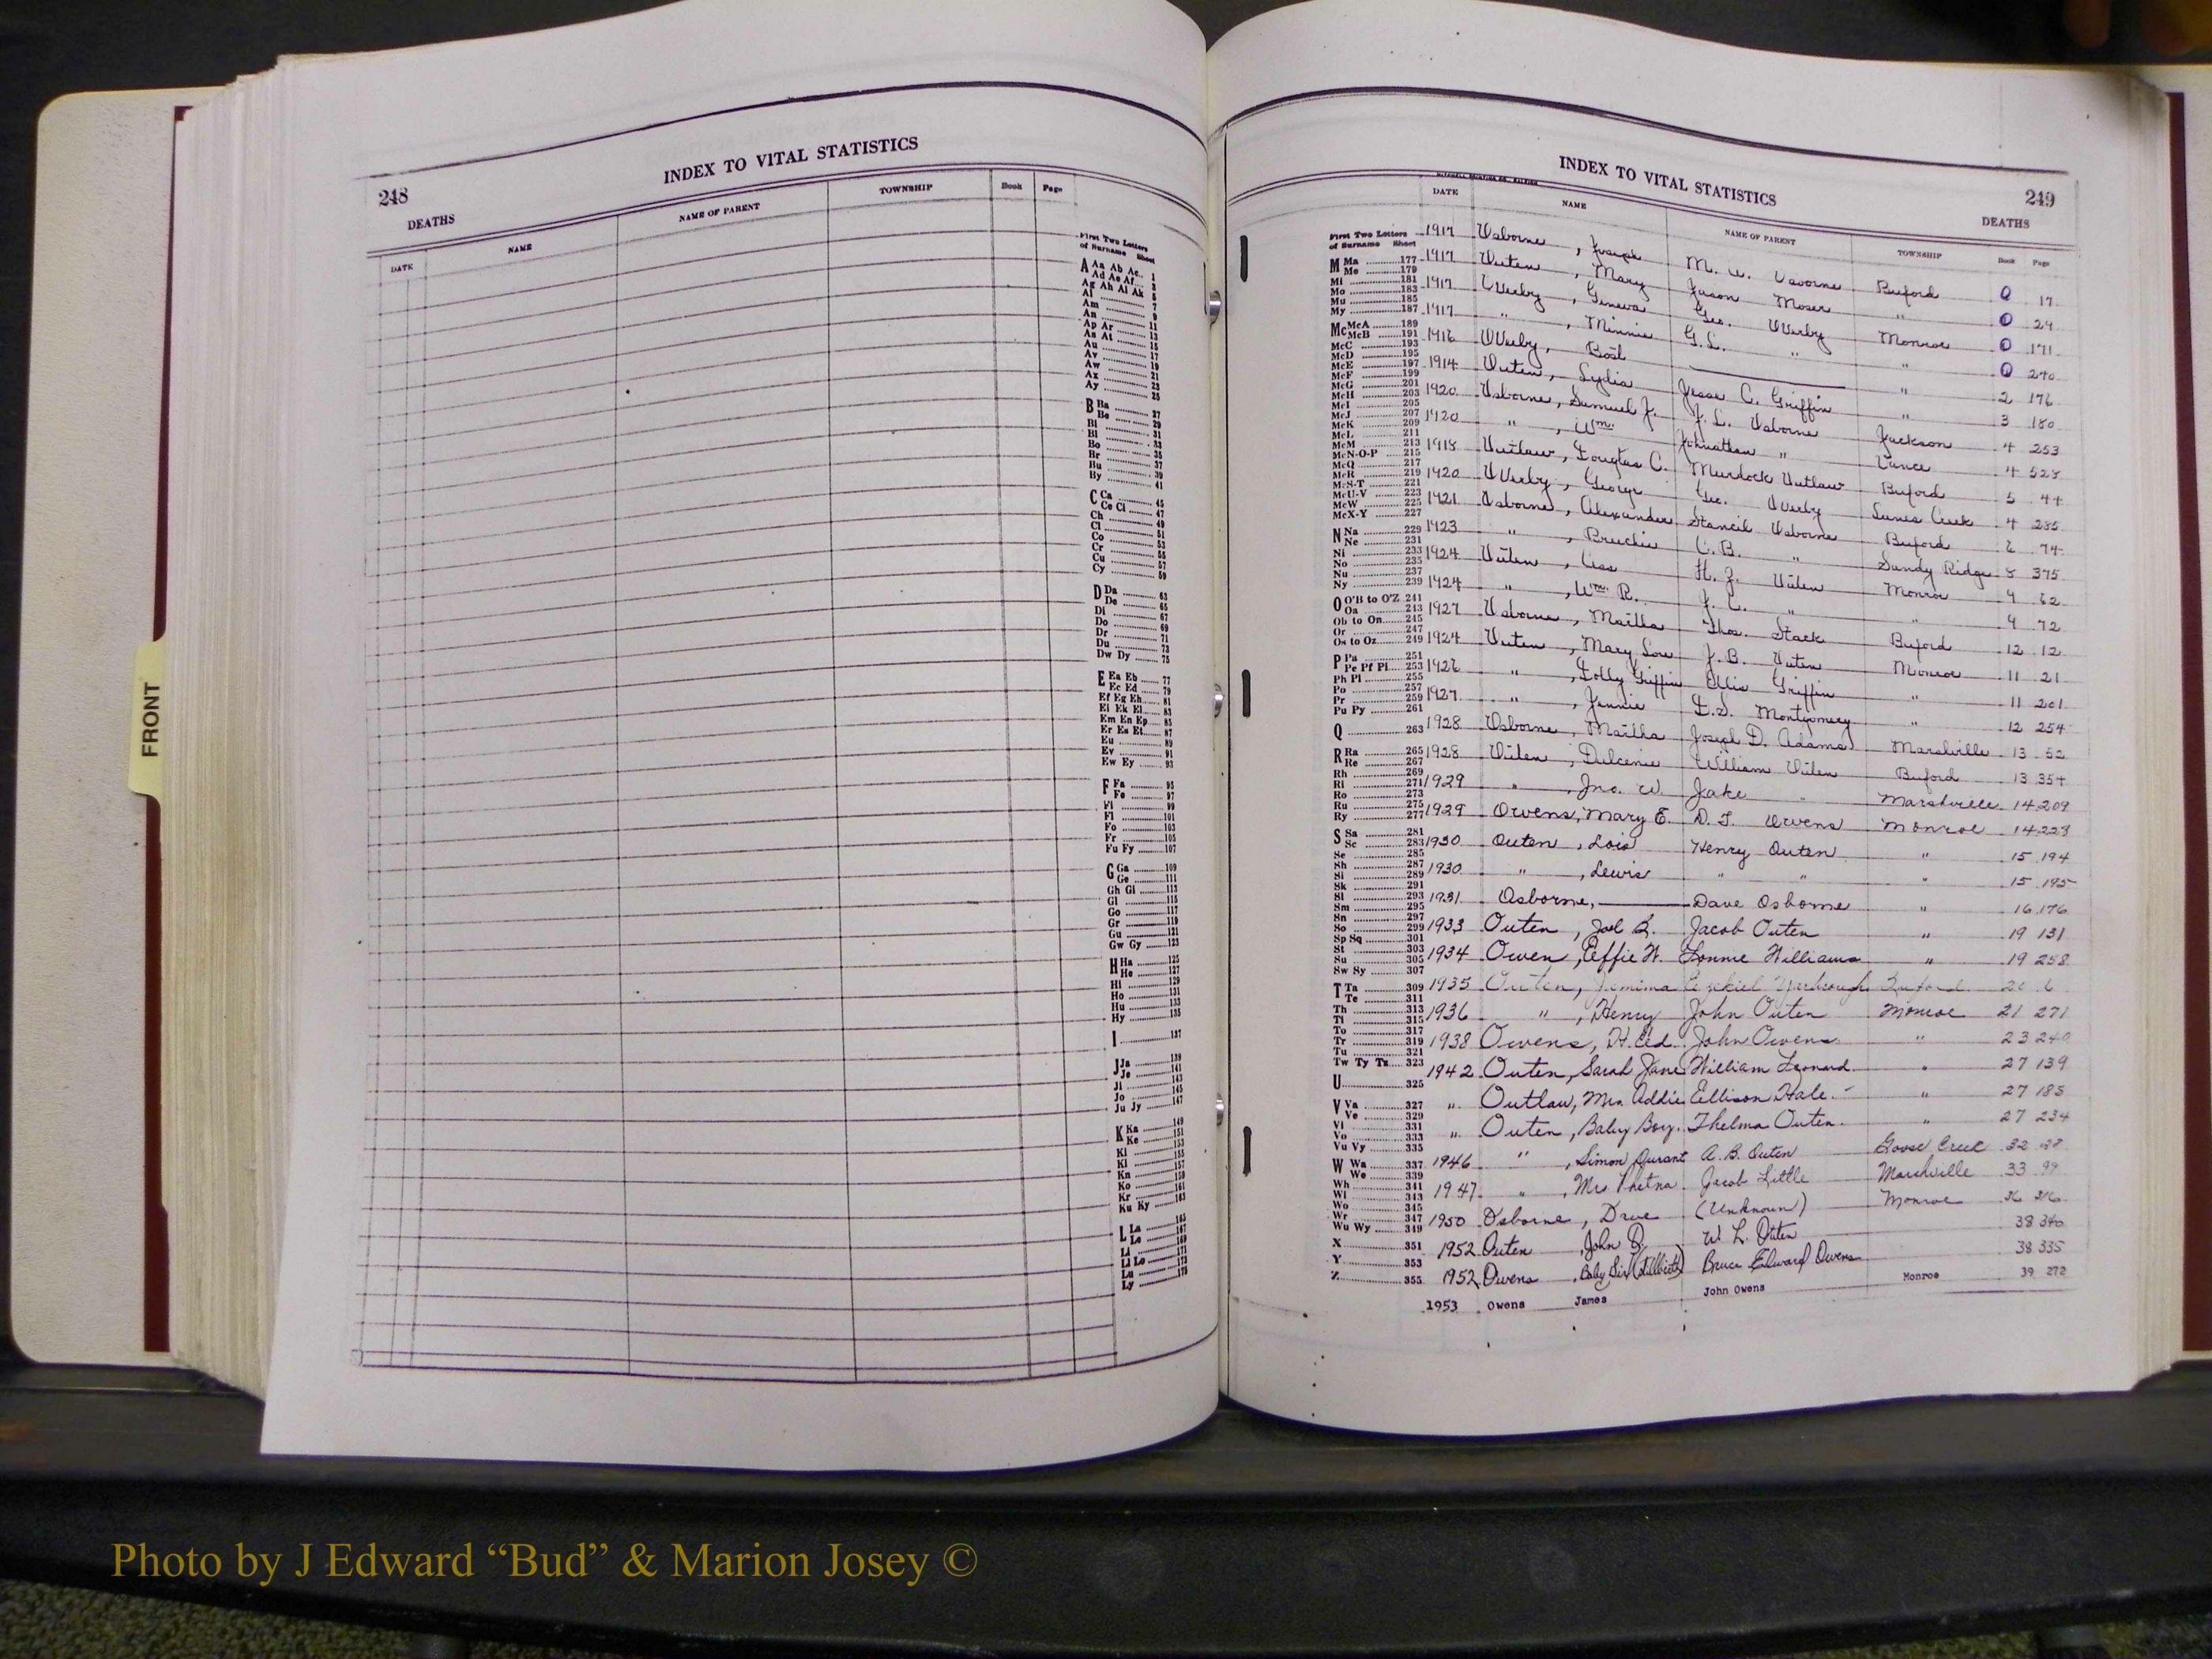 FRONT
248
INDEX TO VITAL STATISTICS
DEATHS
DATE NAME NAME OF PARENT TOWNSHIP Book Page
First Two Letters
of Surname Sheet
A Aa Ab Ac.. 1
Ad Ae Af... 3
Ag Ah Ai Ak 5
Al 7
Am 9
An 11
Ap Ar 13
As At 15
Au 17
Av 19
Aw 21
Ax 23
Ay 25
B Ba 27
Be 29
Bi 31
Bl 33
Bo 35
Br 37
Bu 39
By 41
C Ca 45
Ce Ci 47
Ch 49
Cl 51
Co 53
Cr 55
Cu 57
Cy 59
D Da 63
De 65
Di 67
Do 69
Dr 71
Du 73
Dw Dy 75
E Ea Eb 77
Ec Ed 79
Ef Eg Eh 81
Ei Ek El 83
Em En Ep 85
Er Es Et 87
Eu 89
Ev 91
Ew Ey 93
F Fa 95
Fe 97
Fi 99
Fl 101
Fo 103
Fr 105
Fu Fy 107
G Ga 109
Ge 111
Gh Gi 113
Gl 115
Go 117
Gr 119
Gu 121
Gw Gy 123
H Ha 125
He 127
Hi 129
Ho 131
Hu 133
Hy 135
I 137
J Ja 139
Je 141
Ji 143
Jo 145
Ju Jy 147
K Ka 149
Ke 151
Ki 153
Kl 155
Kn 157
Ko 159
Kr 161
Ku Ky 163
L La 165
Le 167
Li 169
Ll Lo 171
Lu 173
Ly 175
INDEX TO VITAL STATISTICS
249
DEATHS
DATE NAME NAME OF PARENT TOWNSHIP Book Page
First Two Letters
of Surname Sheet
M Ma 177
Me 179
Mi 181
Mo 183
Mu 185
My 187
Mc McA 189
McB 191
McC 193
McD 195
McE 197
McF 199
McG 201
McH 203
McI 205
McJ 207
McK 209
McL 211
McM 213
McN-O-P 215
McQ 217
McR 219
McS-T 221
McU-V 223
McW 225
McX-Y 227
N Na 229
Ne 231
Ni 233
No 235
Nu 237
Ny 239
O O'B to O'Z 241
Oa 243
Ob to On 245
Or 247
Os to Oz 249
P Pa 251
Pe Pf Pi 253
Ph Pl 255
Po 257
Pr 259
Pu Py 261
Q 263
R Ra 265
Re 267
Rh 269
Ri 271
Ro 273
Ru 275
Ry 277
S Sa 281
Sc 283
Se 285
Sh 287
Si 289
Sk 291
Sl 293
Sm 295
Sn 297
So 299
Sp Sq 301
St 303
Su 305
Sw Sy 307
T Ta 309
Te 311
Th 313
Ti 315
To 317
Tr 319
Tu 321
Tw Ty Tz 323
U 325
V Va 327
Ve 329
Vi 331
Vo 333
Vu Vy 335
W Wa 337
We 339
Wh 341
Wi 343
Wo 345
Wr 347
Wu Wy 349
X 351
Y 353
Z 355
1917 Osborne, Joseph M. W. Osborne Buford 0 17
1917 Outen, Mary Jason Moser " 0 29
1917 Overby, Geneva Geo. Overby Monroe 0 171
1917 ", Minnie G. L. " " 0 240
1916 Overby, Bost " 2 176
1914 Outen, Lydia Jesse C. Griffin " 3 180
1920 Osborne, Samuel J. J. L. Osborne Jackson 4 253
1920 ", Wm. Johnathan " Vance 4 528
1918 Outlaw, Douglas C. Murdock Outlaw Buford 5 44
1920 Overby, George Geo. Overby Lanes Creek 4 285
1921 Osborne, Alexander Stancil Osborne Buford 6 74
1923 ", Bruckie C. B. " Sandy Ridge 8 375
1924 Outen, Cass H. J. Outen Monroe 9 62
1924 ", Wm. R. J. C. " " 9 72
1927 Osborne, Martha Thos. Stack Buford 12 12
1924 Outen, Mary Lou J. B. Outen Monroe 11 21
1926 ", Dolly Griffin Ellis Griffin " 11 201
1927 ", Jennie D. S. Montgomery " 12 254
1928 Osborne, Martha Joseph D. Adams Marshville 13 52
1928 Outen, Dulcenie William Outen Buford 13 354
1929 ", Jno. W. Jake " Marshville 14 209
1929 Owens, Mary E. D. T. Owens Monroe 14 223
1930 Outen, Lois Henry Outen " 15 194
1930 ", Lewis " " " 15 195
1931 Osborne, Dave Osborne " 16 176
1933 Outen, Joel B. Jacob Outen " 19 131
1934 Owen, Effie W. Lonnie Williams " 19 258
1935 Outen, Jemima Ezekiel Yarbrough Buford 20 6
1936 ", Henry John Outen Monroe 21 271
1938 Owens, H. Ed. John Owens " 23 240
1942 Outen, Sarah Jane William Leonard " 27 139
" Outlaw, Mrs Addie Ellison Hale " 27 185
" Outen, Baby Boy. Thelma Outen. " 27 234
1946 ", Simon Durant A. B. Outen Goose Creek 32
1947 ", Mrs Jacob Little Marshville 33 99
1950 Osborne, Dave (Unknown) Monroe 36 316
1952 Outen, John B. W. L. Outen 38 340
1952 Owens, Baby Girl (Stillbirth) Bruce Edward Owens 38 335
1953 Owens James John Owens Monroe 39 272
Photo by J Edward “Bud” & Marion Josey ©